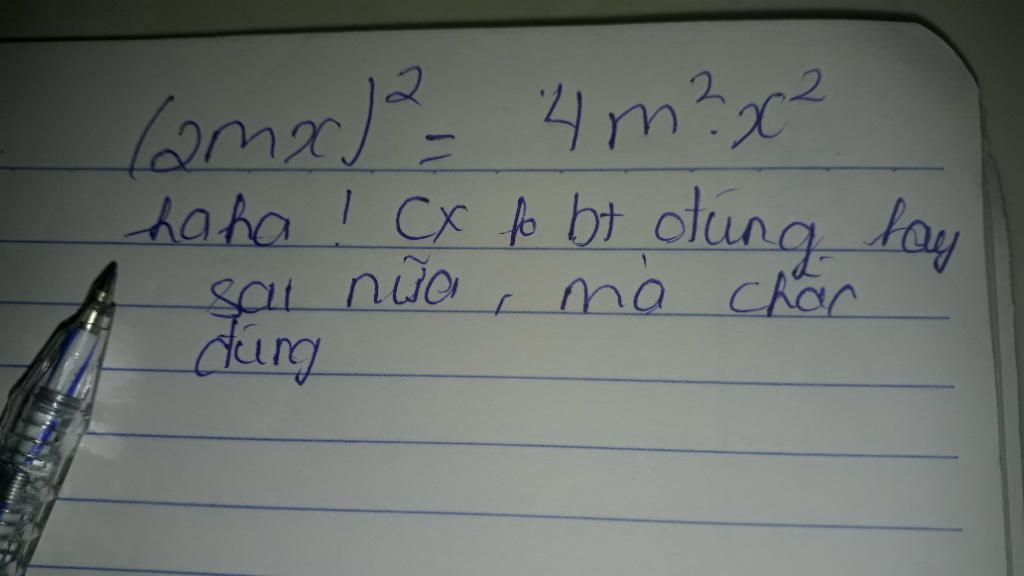 (2mx)² = 4m².x²
haha ! Cx k bt đúng hay
sai nữa, mà chắc
đúng